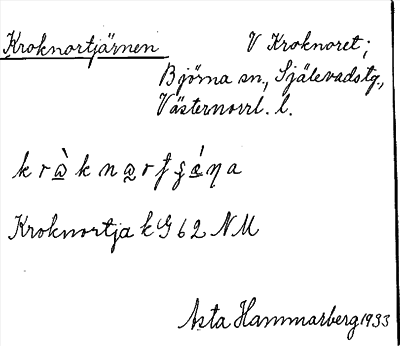 Kroknortjärnen
V Kroknoret;
Björna sn., Själevadstg.,
Västernorrl. l.
Kroknortja k G 62 NM
Asta Hammarberg 1933